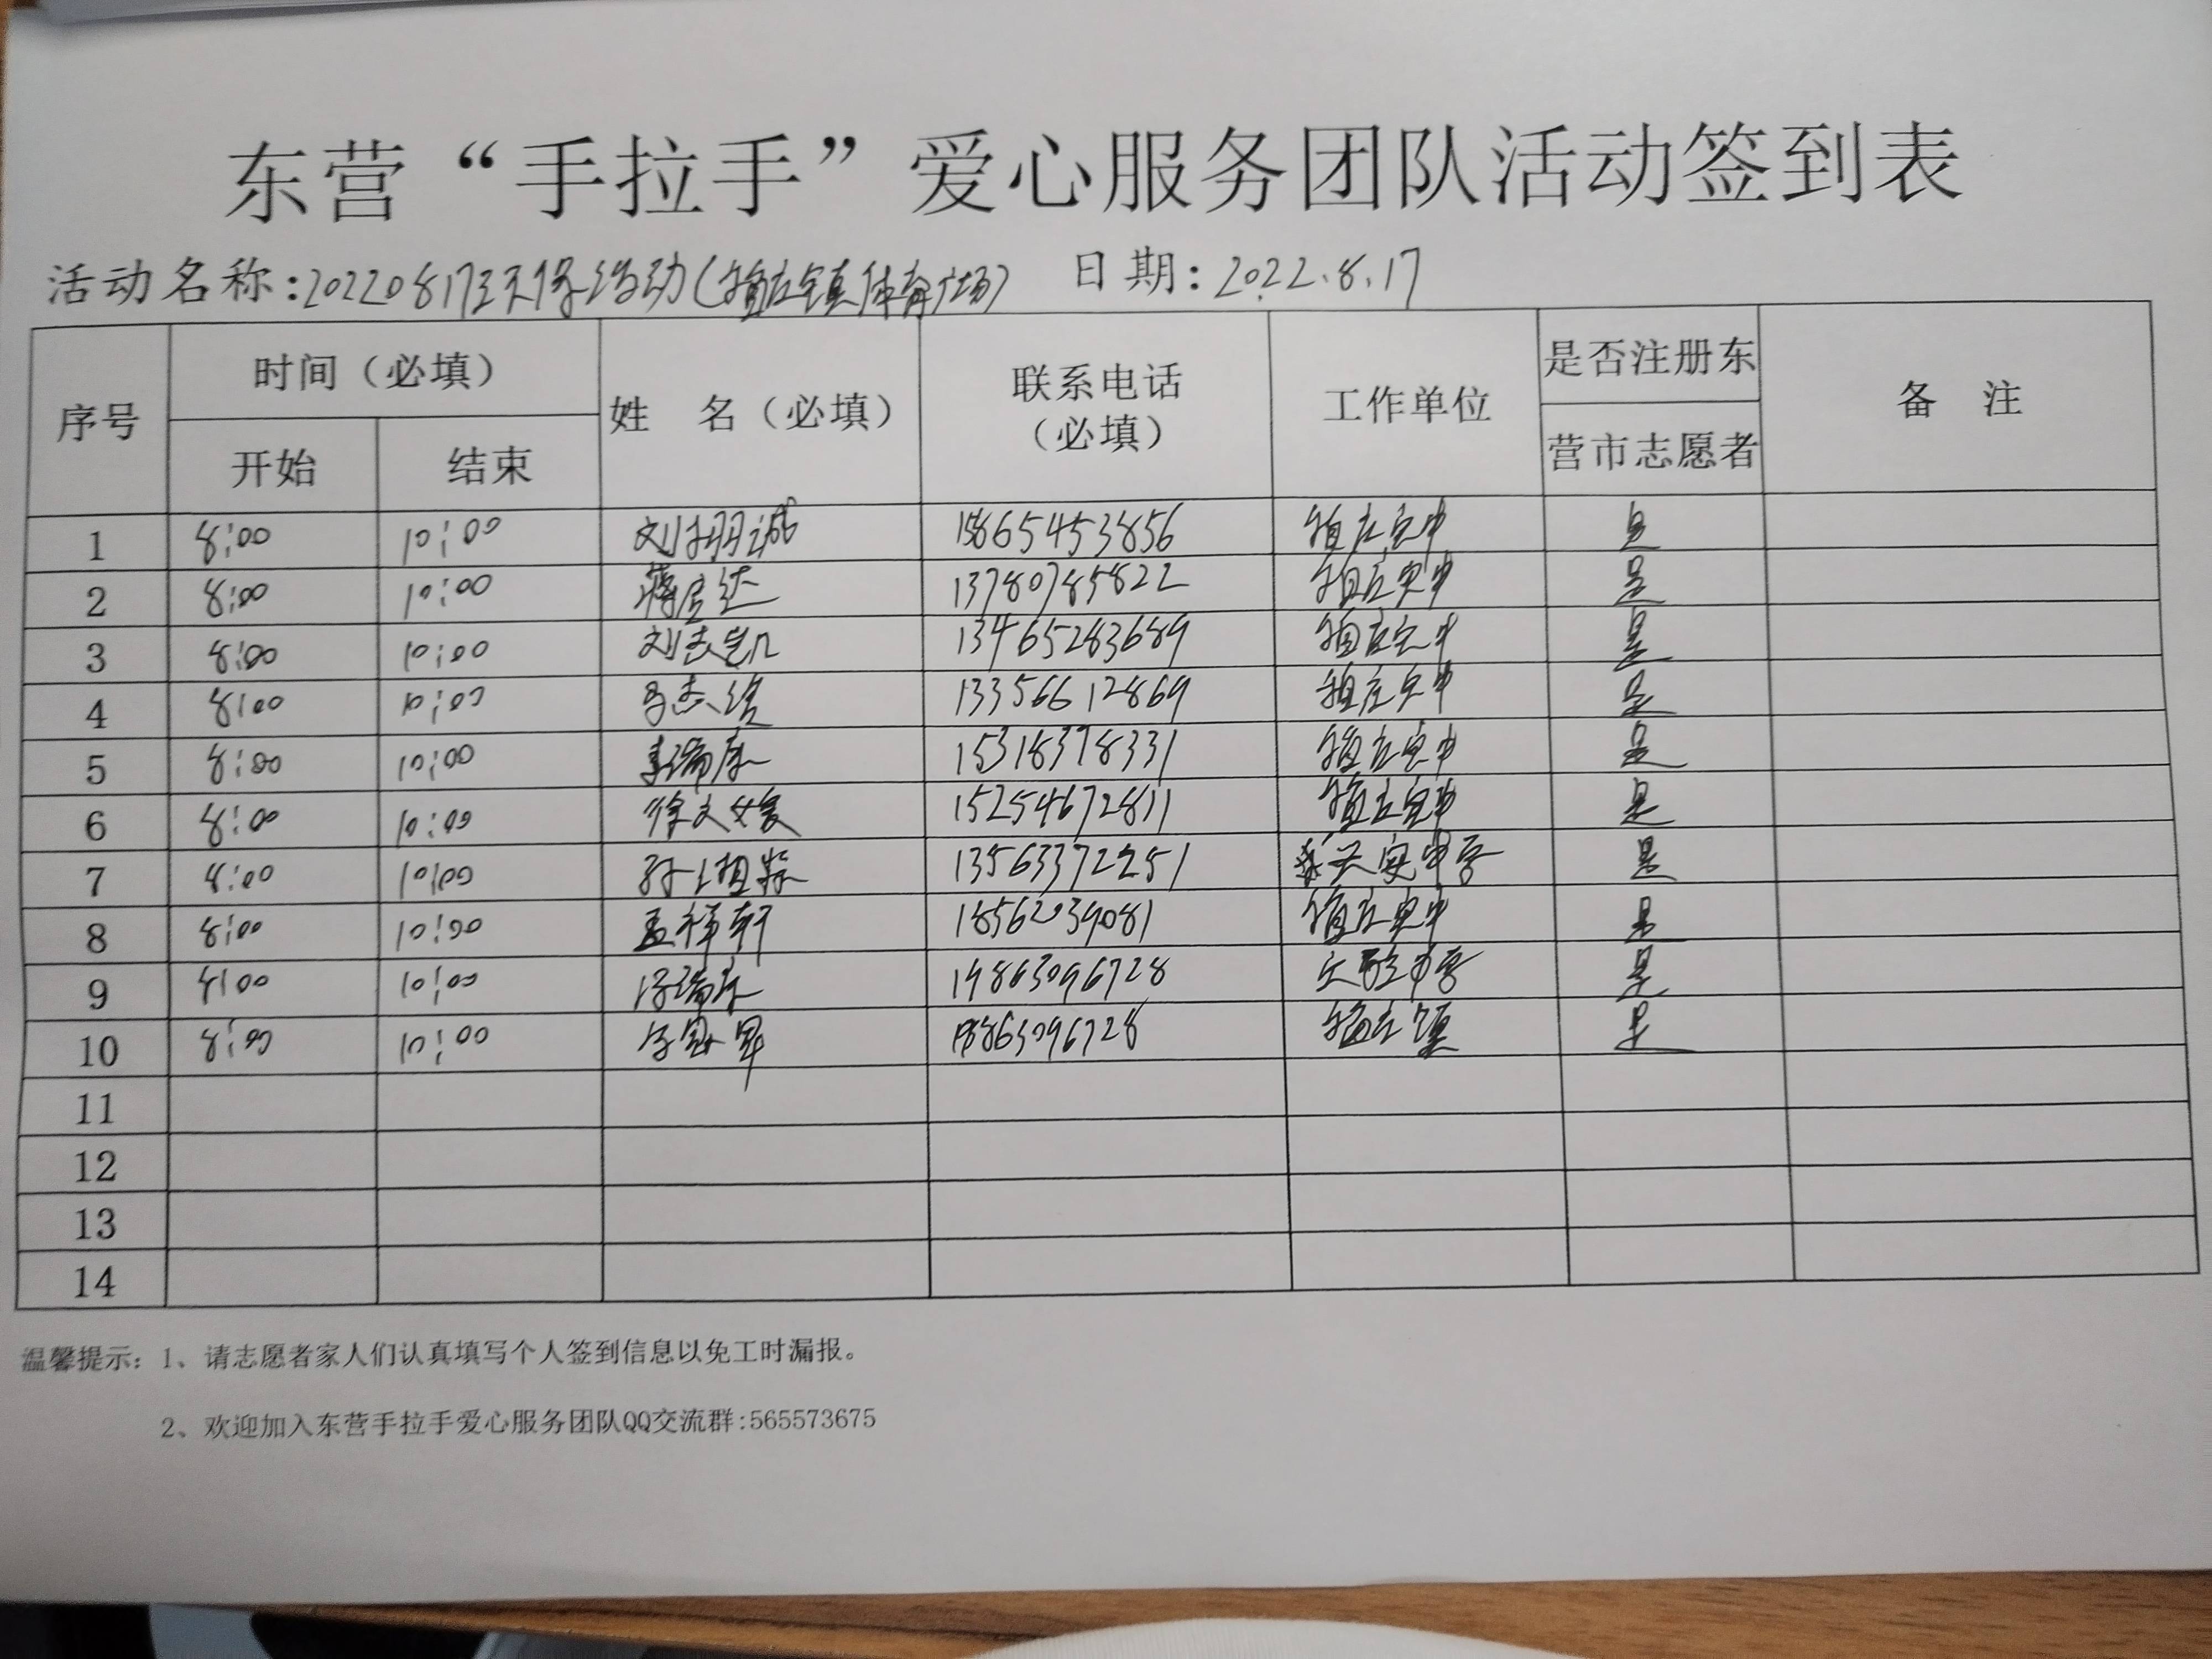 东营“手拉手”爱心服务团队活动签到表
活动名称:20220817环保活动(稻庄镇体育广场) 日期:2022.8.17
序号 时间（必填） 姓 名（必填） 联系电话（必填） 工作单位 是否注册东营市志愿者 备 注
开始 结束
1 8:00 10:00 15865453856 稻庄实中 是
2 8:00 10:00 13780785822 稻庄实中 是
3 8:00 10:00 刘志凯 13465283689 稻庄实中 是
4 8:00 10:00 13356612869 稻庄实中 是
5 8:00 10:00 李瑞康 15318378331 稻庄实中 是
6 8:00 10:00 徐文媛 15254672811 稻庄实中 是
7 8:00 10:00 13563372251 是
8 8:00 10:00 孟祥轩 18562039081 稻庄实中 是
9 8:00 10:00 19863096728 是
10 8:00 10:00 稻庄镇 是
11
12
13
14
温馨提示：1、请志愿者家人们认真填写个人签到信息以免工时漏报。
2、欢迎加入东营手拉手爱心服务团队QQ交流群:565573675